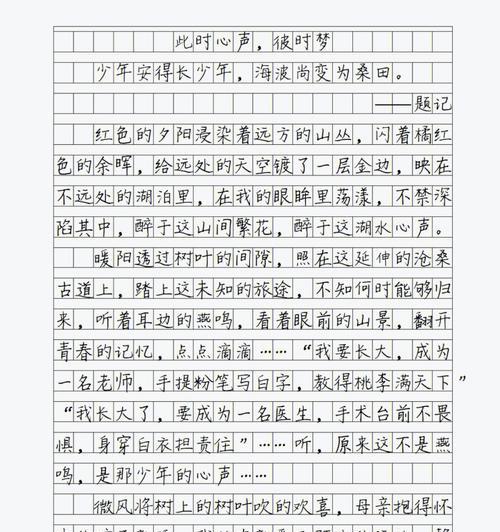 此时心声，彼时梦
少年安得长少年，海波尚变为桑田。
——题记
红色的夕阳浸染着远方的山丛，闪着橘红
色的余晖，给远处的天空镀了一层金边，映在
不远处的湖泊里，在我的眼眸里荡漾，不禁深
陷其中，醉于这山间繁花，醉于这湖水心声。
暖阳透过树叶的间隙，照在这延伸的沧桑
古道上，踏上这未知的旅途，不知何时能够归
来，听着耳边的燕鸣，看着眼前的山景，翻开
青春的记忆，点点滴滴……“我要长大，成为
一名老师，手提粉笔写白字，教得桃李满天下”
“我长大了，要成为一名医生，手术台前不畏
惧，身穿白衣担责任”……听，原来这不是燕
鸣，是那少年的心声……
微风将树上的树叶吹的欢喜，母亲抱得怀